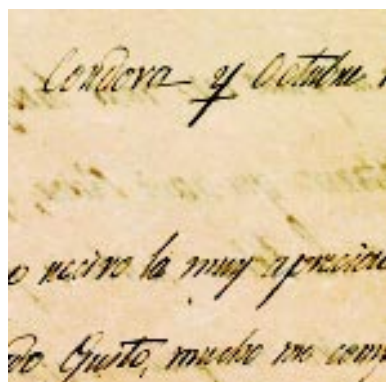 Cordova y Octubre
o recivo la muy apreciac
do Gusto, mucho me comp